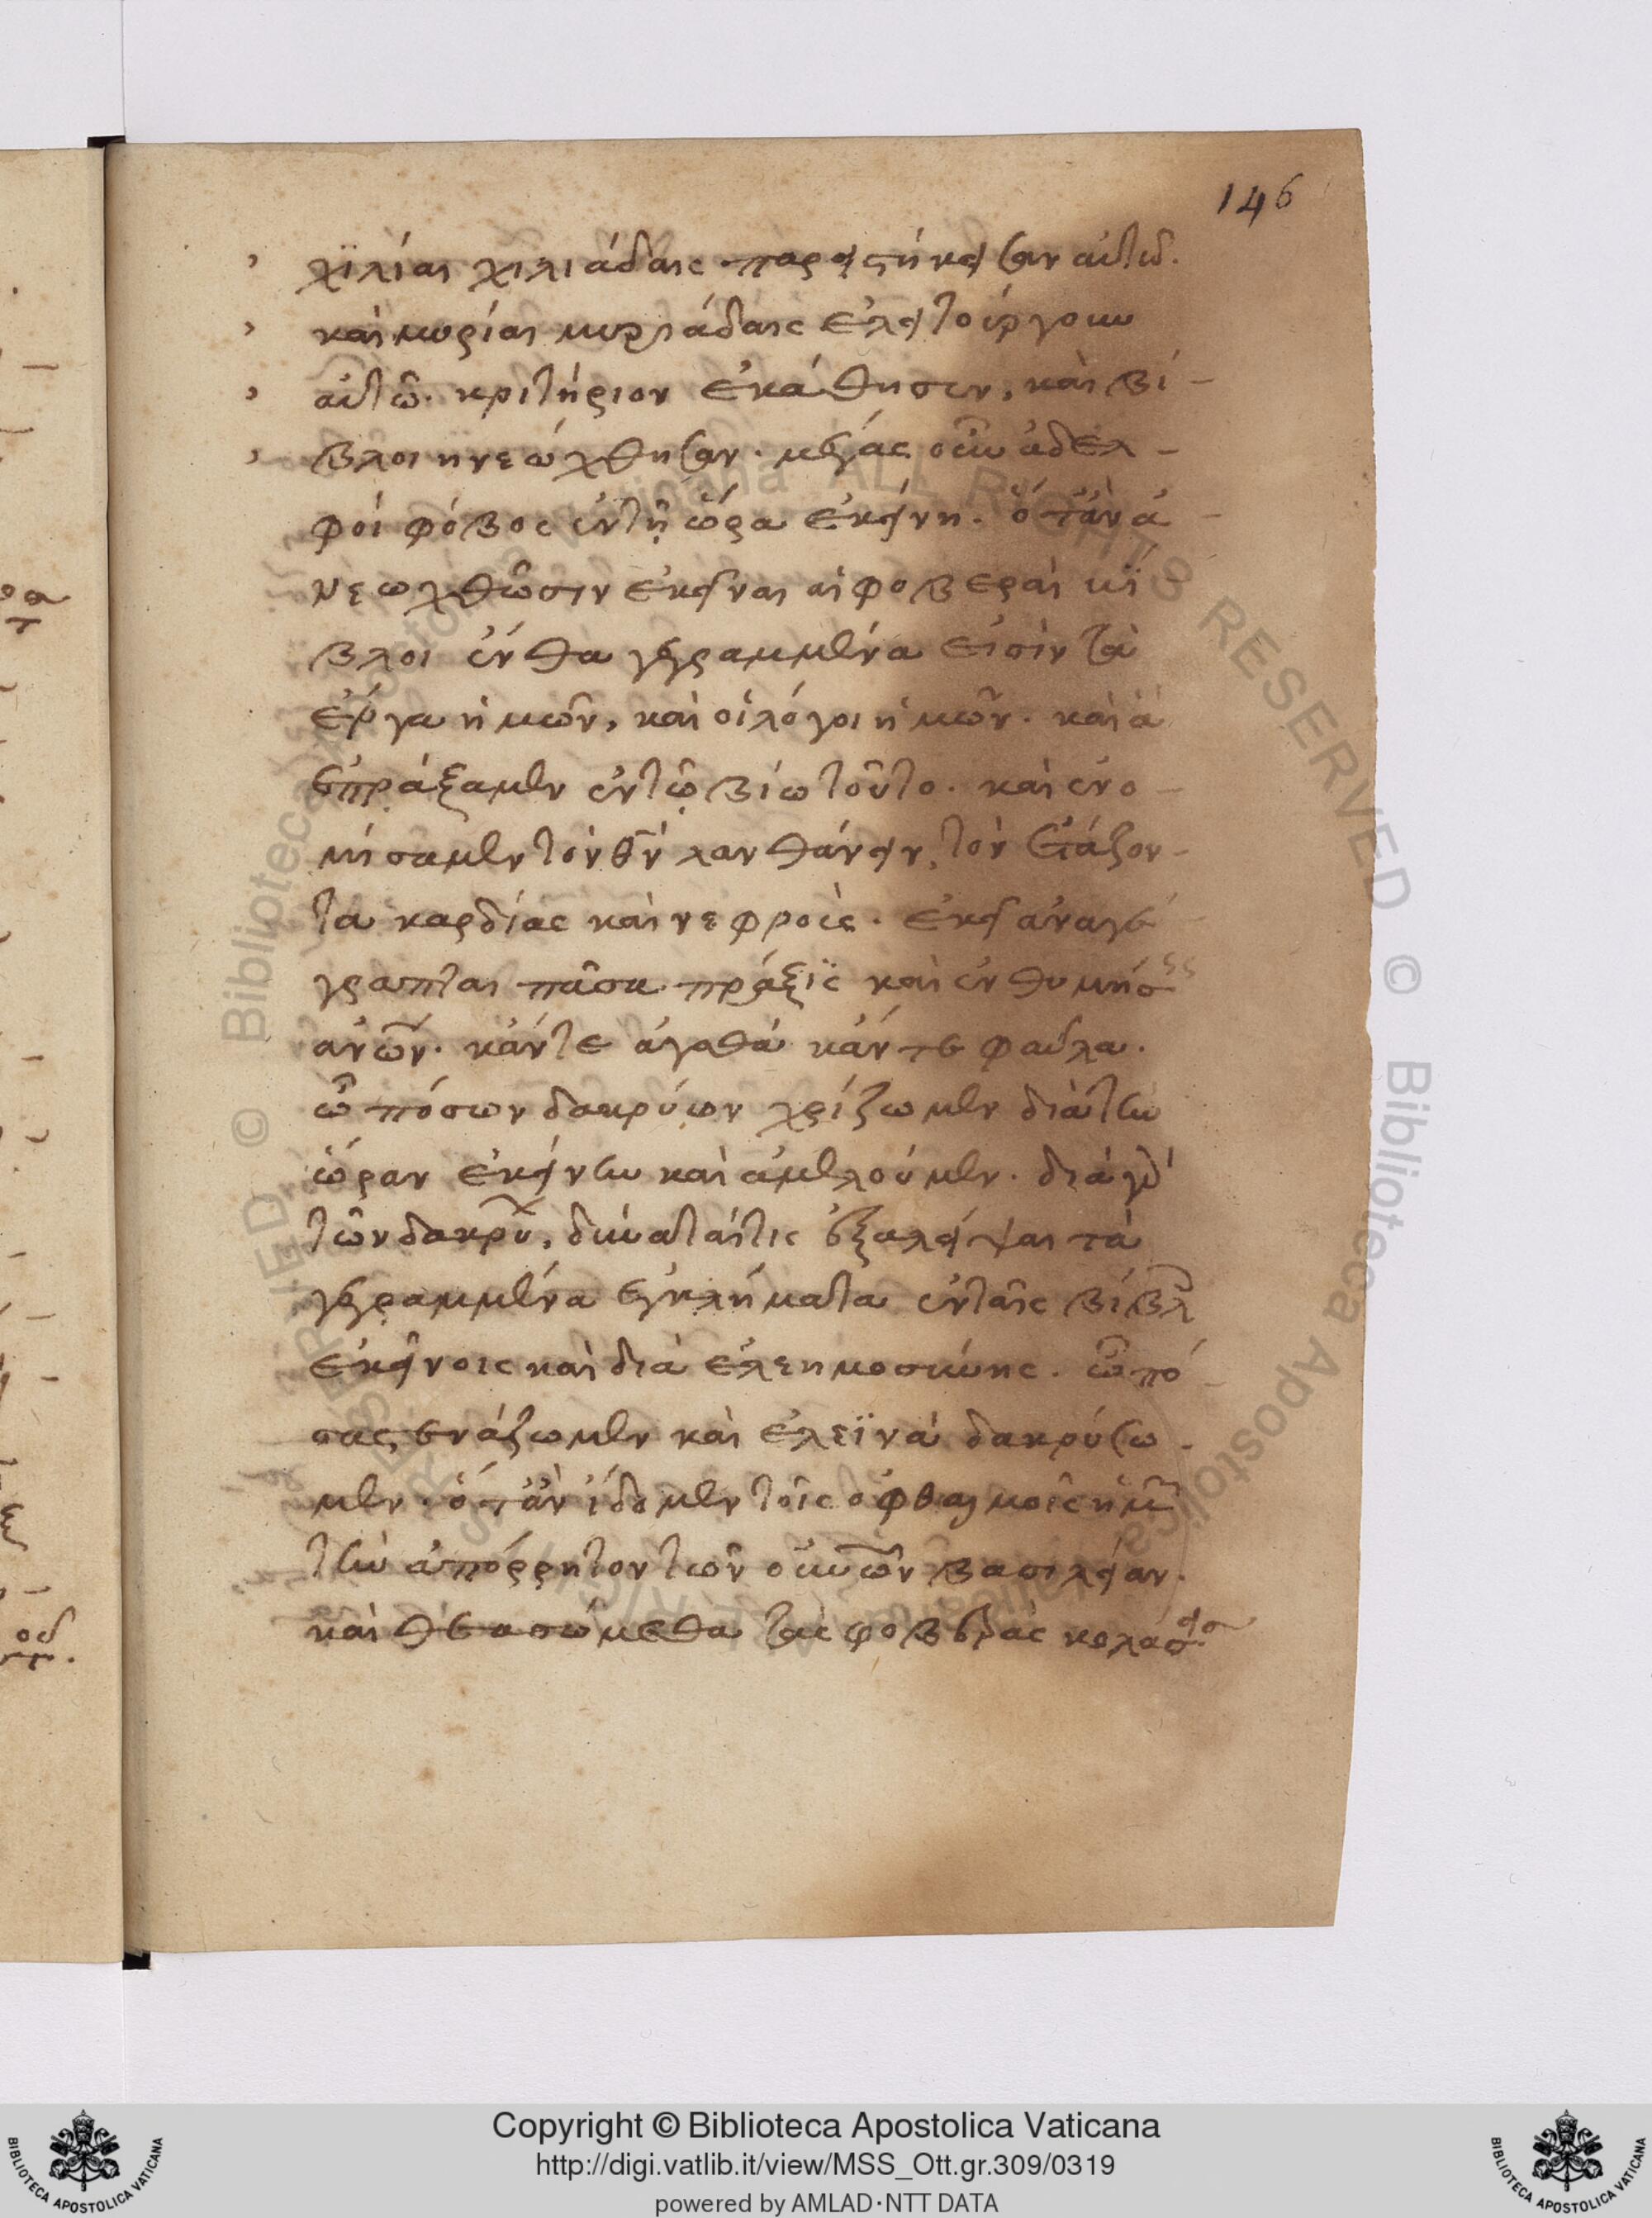 146
χϊλίαι χιλιάδαις παρειστήκεισαν αὐτῶ.
καὶ μυρίαι μυριάδαις ἐλειτούργουν
αὐτῶ. κριτήριον ἐκάθησεν, καὶ βί-
βλοι ηνεώχθησαν. μέγας οὖν ἀδελ-
φοί φόβος ἐν τῆ ὥρα ἐκείνη. ὅτἂν ἀ-
νεωχθῶσιν ἐκείναι αἱ φοβεραὶ βί
βλοι ἔνθα γεγραμμένα εἰσὶν τὰ
ἔργα ἡμῶν, καὶ οἱ λόγοι ἡμῶν. καὶ ἁ
ἐπράξαμεν ἐν τῶ βίω τοῦτο. καὶ ἐνο-
μήσαμεν τὸν θν λανθάνειν, τὸν ἐτάζον-
τα καρδίας καὶ νεφροὶς. ἐκεῖ ἀναγέ
γραπται πᾶσα πράξϊς καὶ ἐνθυμήσεις
ανων. κἄντε ἀγαθά κἄν τε φαῦλα.
ὦ πόσων δακρύων χρίζωμεν διὰ τὴν
ὥραν ἐκείνην καὶ ἀμελοῦμεν. διὰ γὰρ
τῶν δακρύων, δύναταί τις ἐξαλείψαι τὰ
γεγραμμένα ἐγκλήματα ἐν ταῖς βίβλ
ἐκείνοις καὶ διὰ ἐλεημοσύνης. ὦ πό
σας στενάζωμεν καὶ ἐλεϊνὰ δακρύσω-
μεν. ὅτἂν ἴδομεν τοῖς ὀφθαλμοῖς ἡμ
τὴν ἀπόρρητον τῶν οὐνῶν βασιλείαν.
καὶ θεασώμεθα τὰς φοβερὰς κολάσεις.
Copyright © Biblioteca Apostolica Vaticana
http://digi.vatlib.it/view/MSS_Ott.gr.309/0319
powered by AMLAD·NTT DATA